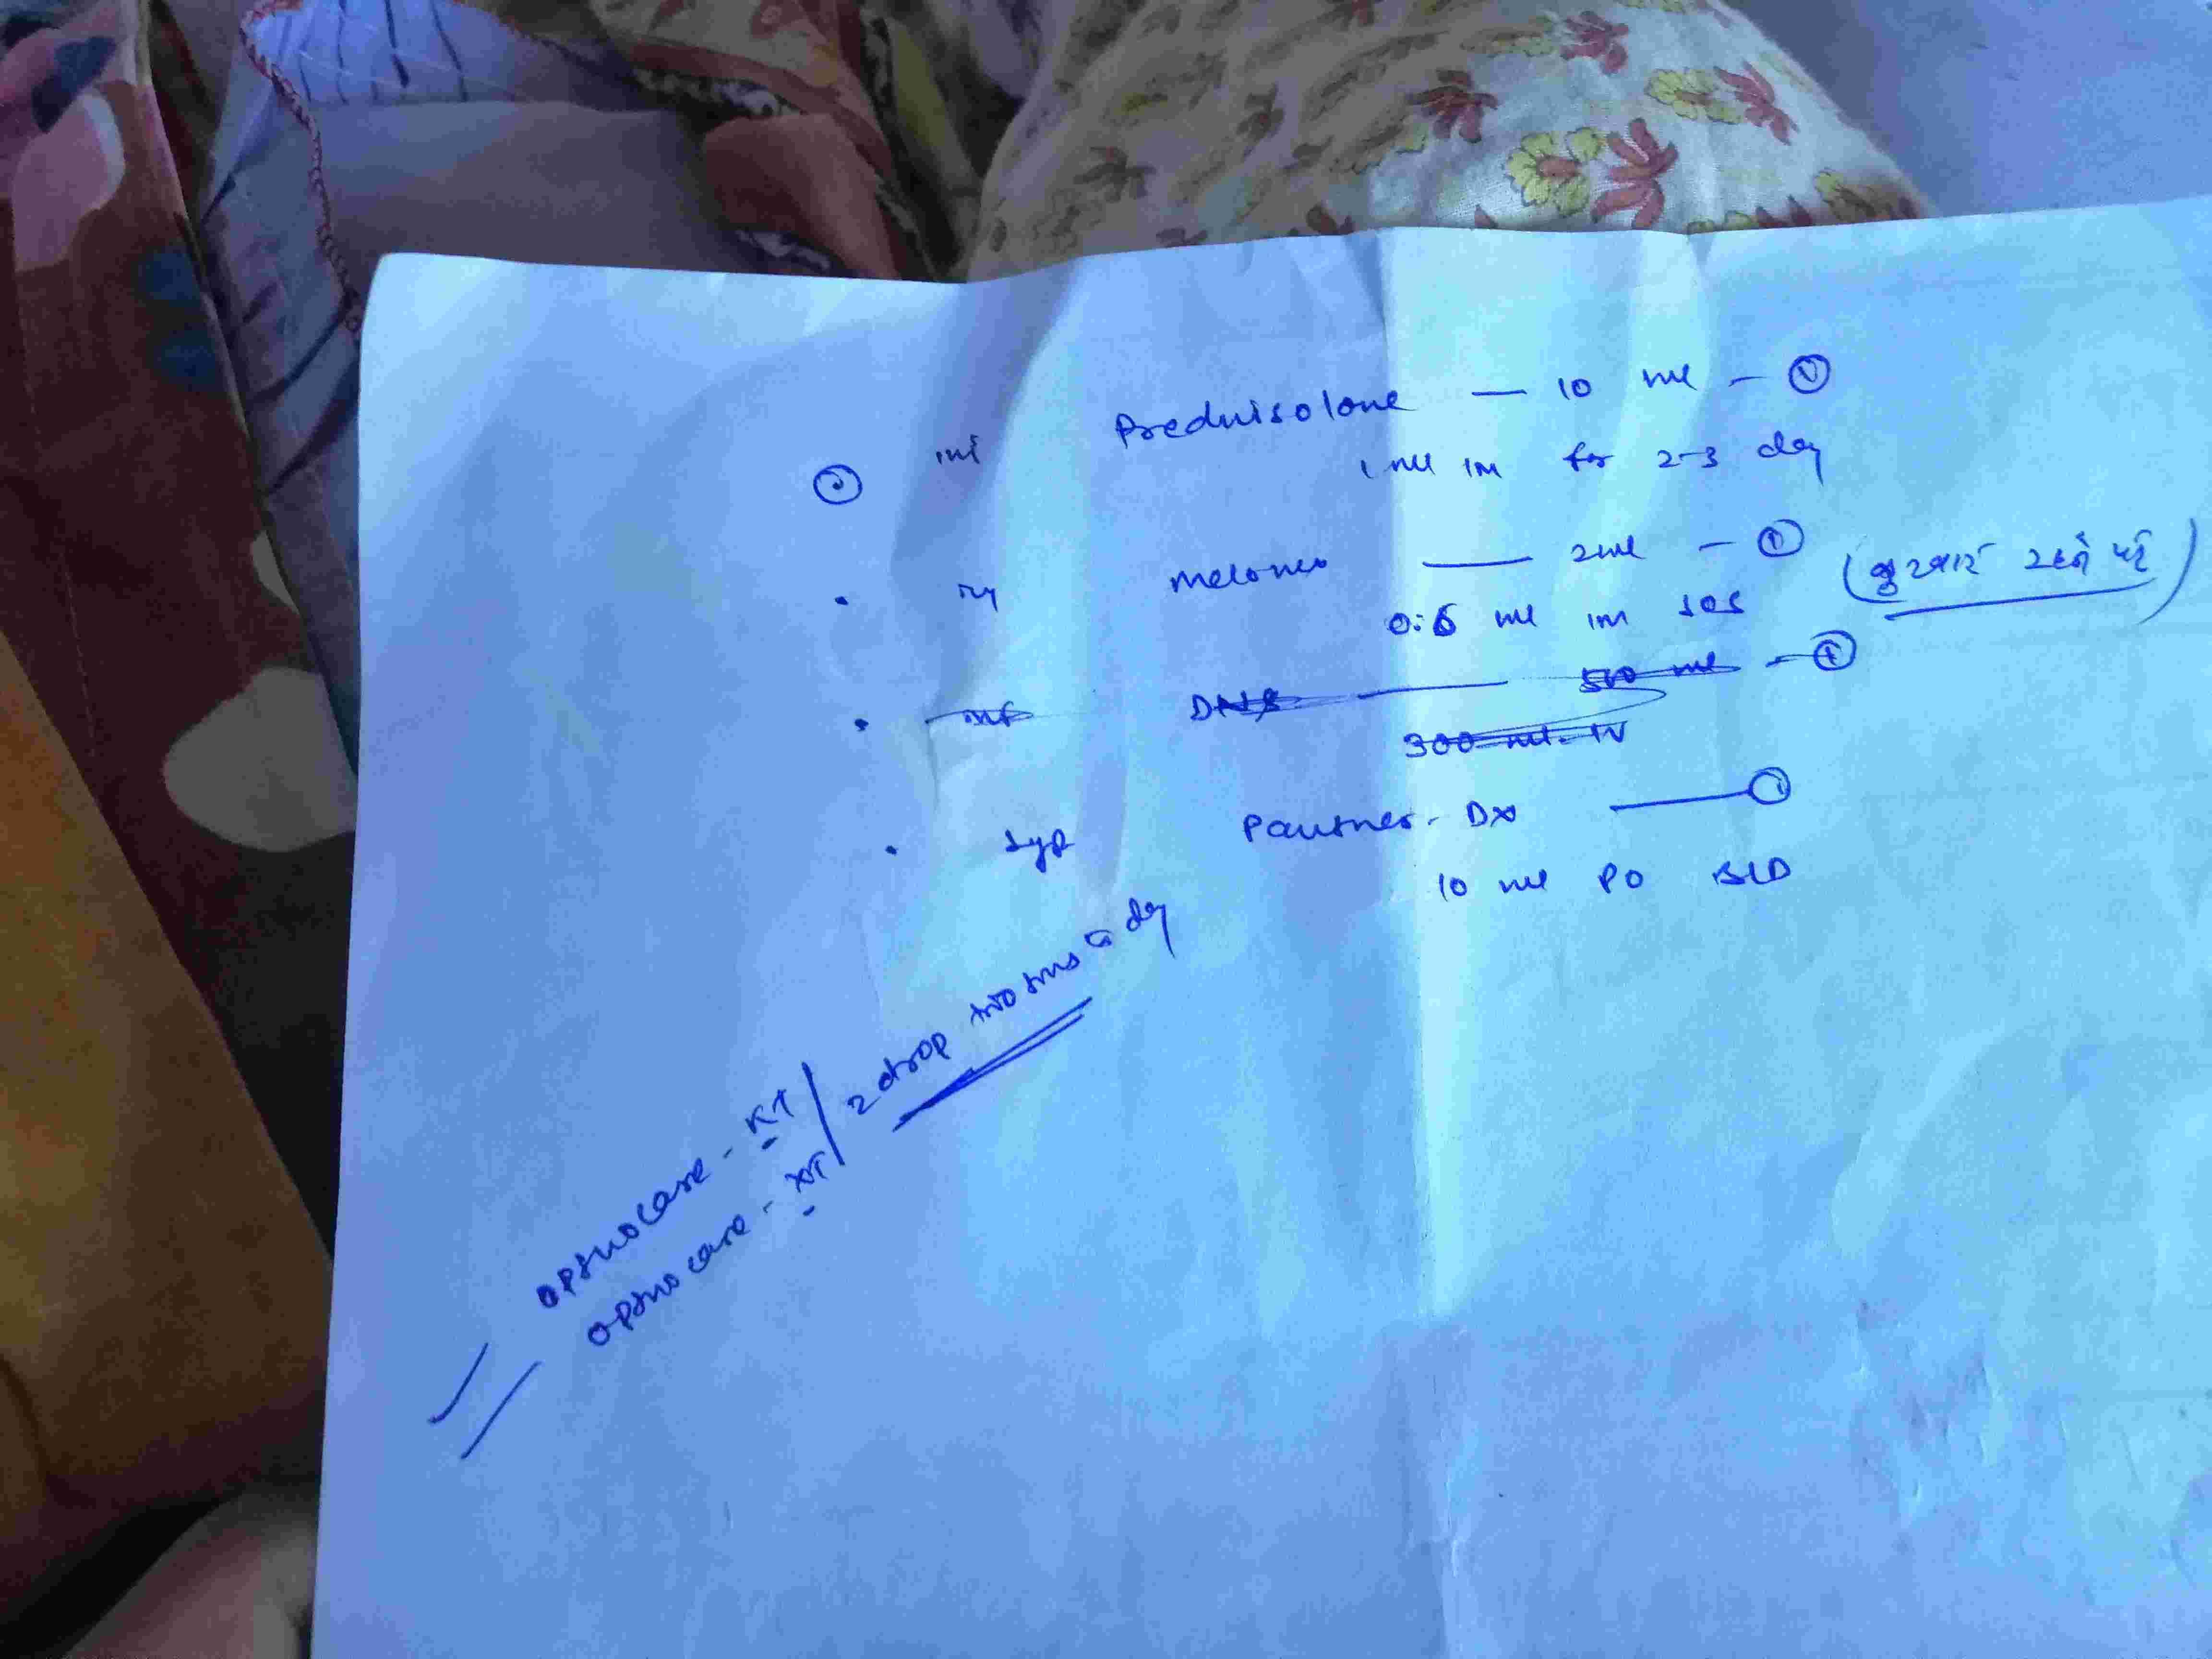 inj Prednisolone — 10 ml - ①
1 ml IM for 2-3 day
Melonex — 2ml - ①
0.5 ml IM SOS
DNS — 500 ml - ①
300 ml IV
syp Partner - DX — ①
10 ml PO BID
opthocare - KT
opthocare - XT
2 drop two times a day